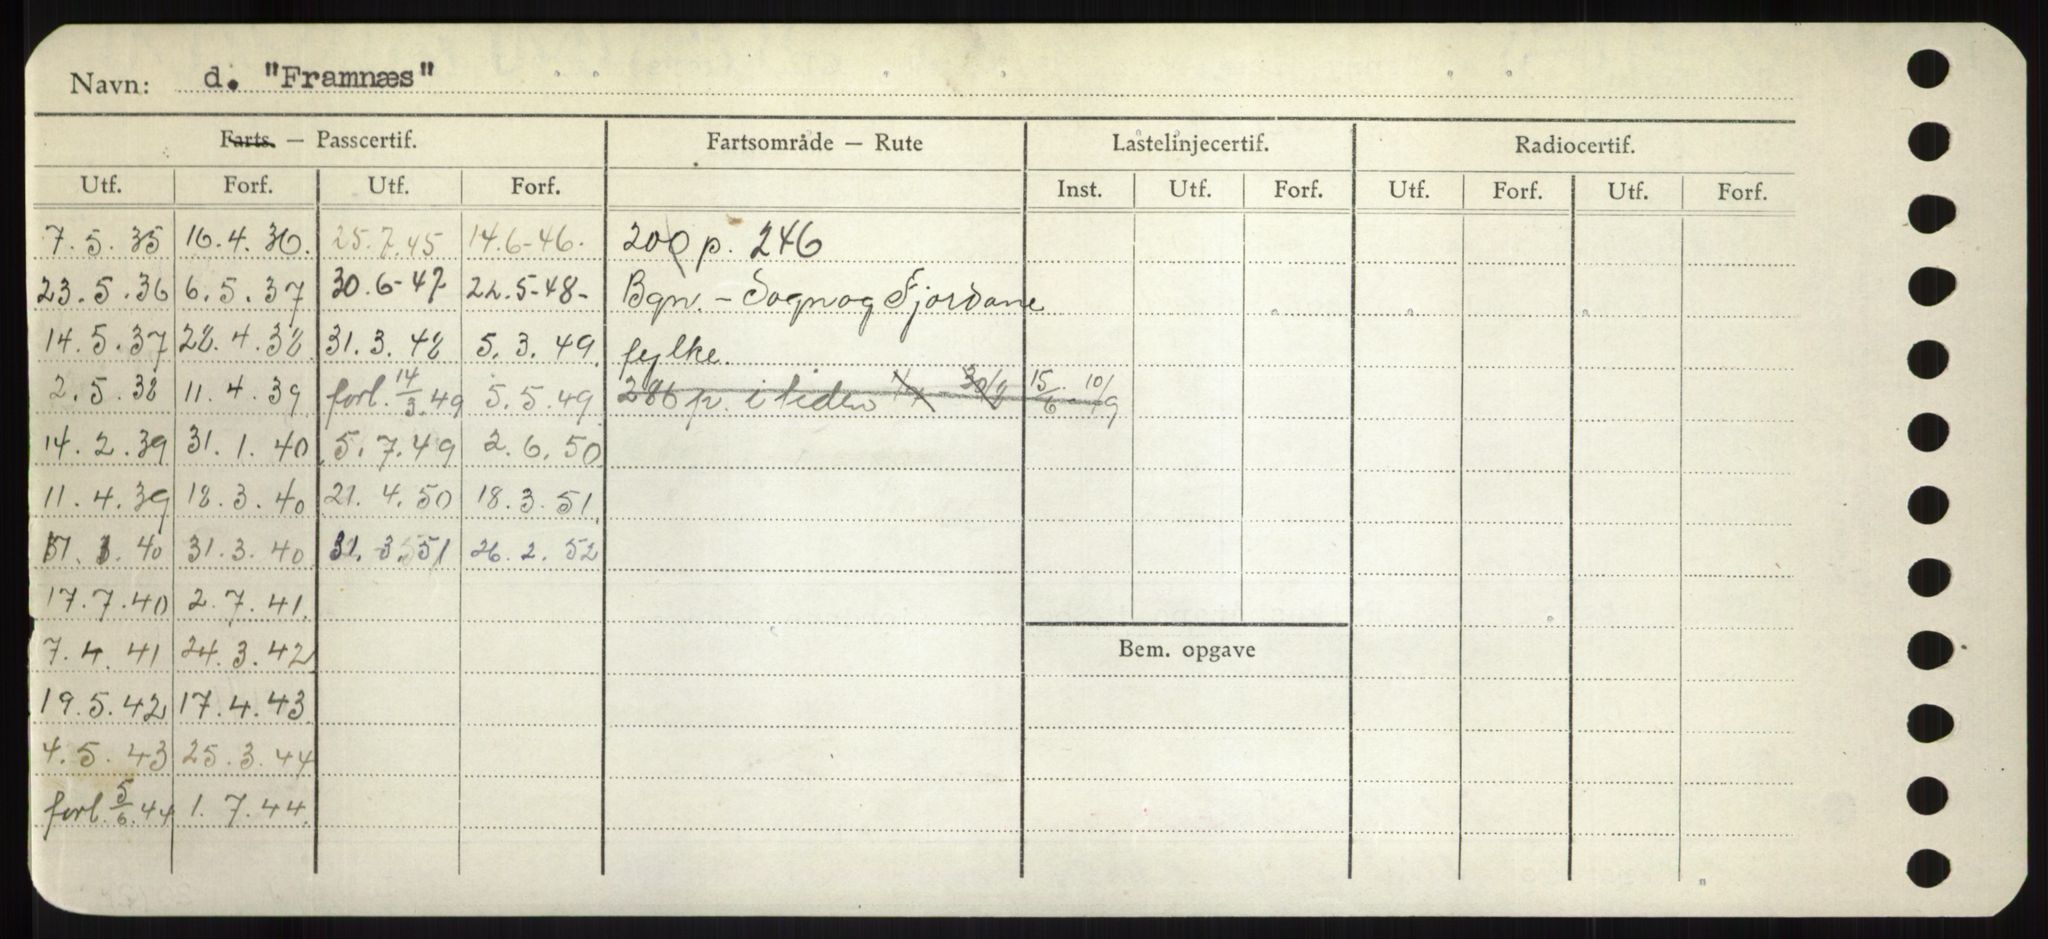 Navn: d. "Framnæs"
Farts. — Passcertif. Fartsområde — Rute Lastelinjecertif. Radiocertif.
Utf. Forf. Utf. Forf. Inst. Utf. Forf. Utf. Forf. Utf. Forf.
7.5.35 16.4.36. 25.7.45 14.6-46. 200 p. 246
23.5.36 6.5.37 30.6-47 22.5-48- Bgn. - Sogn og Fjordane
14.5.37 28.4.38 31.3.48 5.3.49 fylke.
2.5.38 11.4.39 forl. 14/3.49 5.5.49 286 p. i tiden 30/8 15/6 - 10/9
14.2.39 31.1.40 5.7.49 2.6.50
11.4.39 18.3.40 21.4.50 18.3.51
40 31.3.40 31.3.51 26.2.52
17.7.40 2.7.41
7.4.41 24.3.42 Bem. opgave
19.5.42 17.4.43
4.5.43 25.3.44
forl. 5/6.44 1.7.44